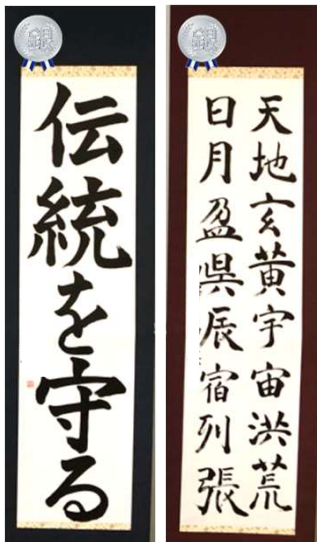 伝統を守る
天地玄黄宇宙洪荒
日月盈昃辰宿列張